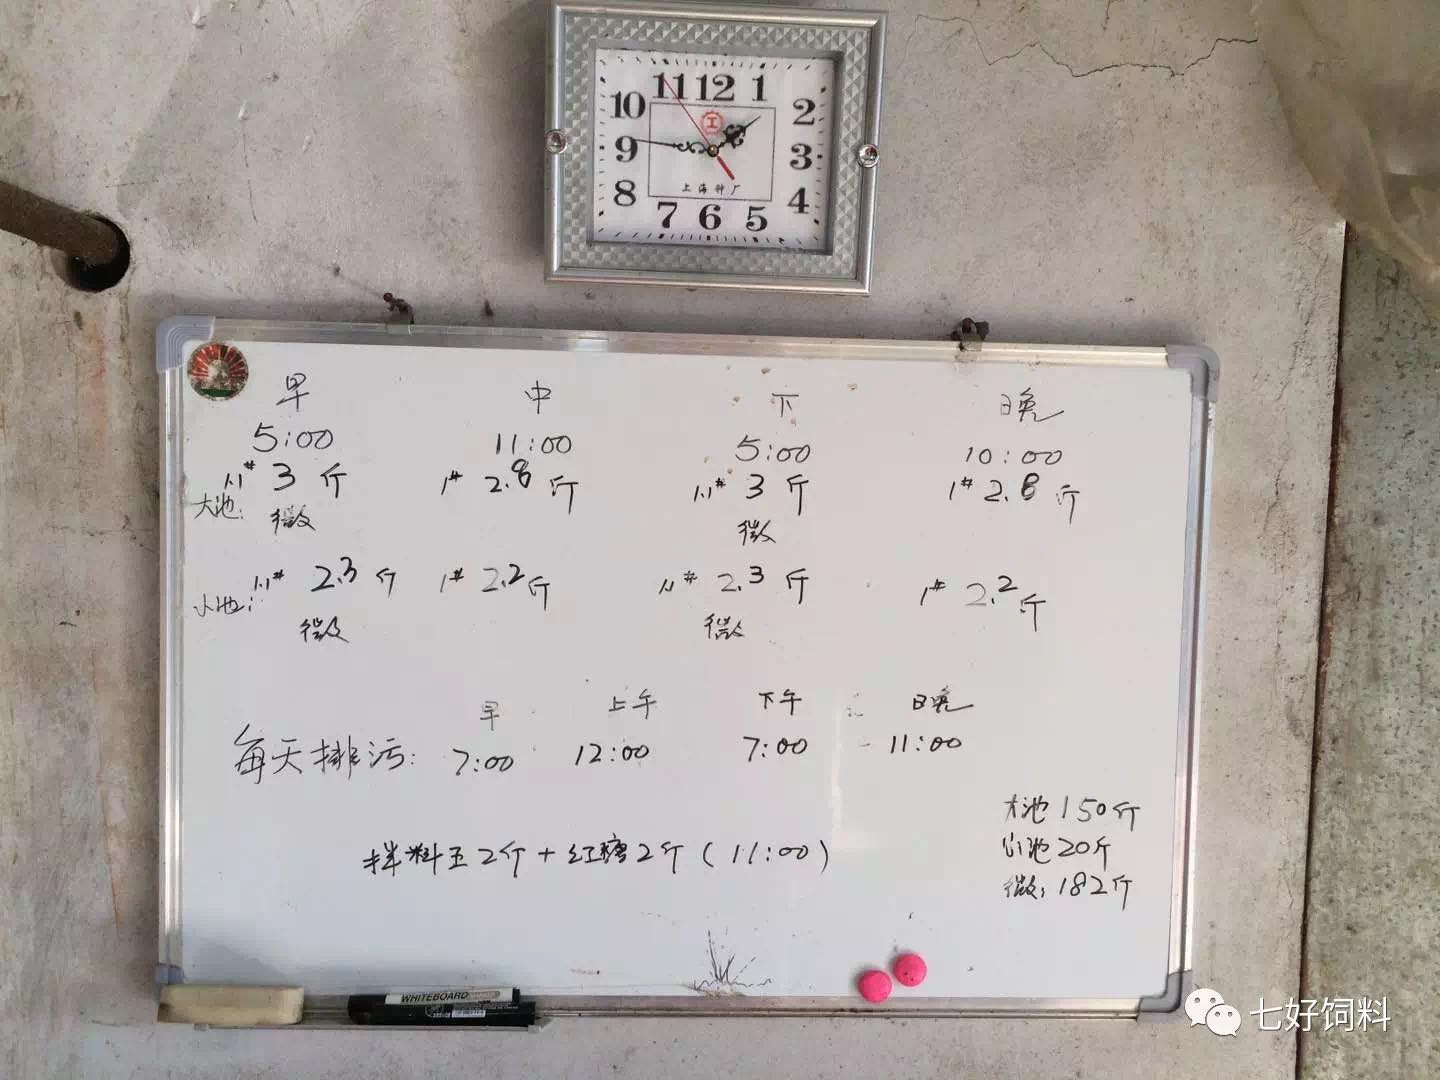 11 12 1
10 2
9 3
8 4
7 6 5
上海钟厂
早 中 下 晚
5:00 11:00 5:00 10:00
大池: 1.1# 3斤 1# 2.8斤 1.1# 3斤 1# 2.8斤
微 微
小池: 1.1# 2.3斤 1# 2.2斤 1.1# 2.3斤 1# 2.2斤
微 微
早 上午 下午 晚
每天排污: 7:00 12:00 7:00 11:00
大池150斤
拌料王2斤+红糖2斤(11:00)
小池20斤
微: 182斤
WHITEBOARD
七好饲料